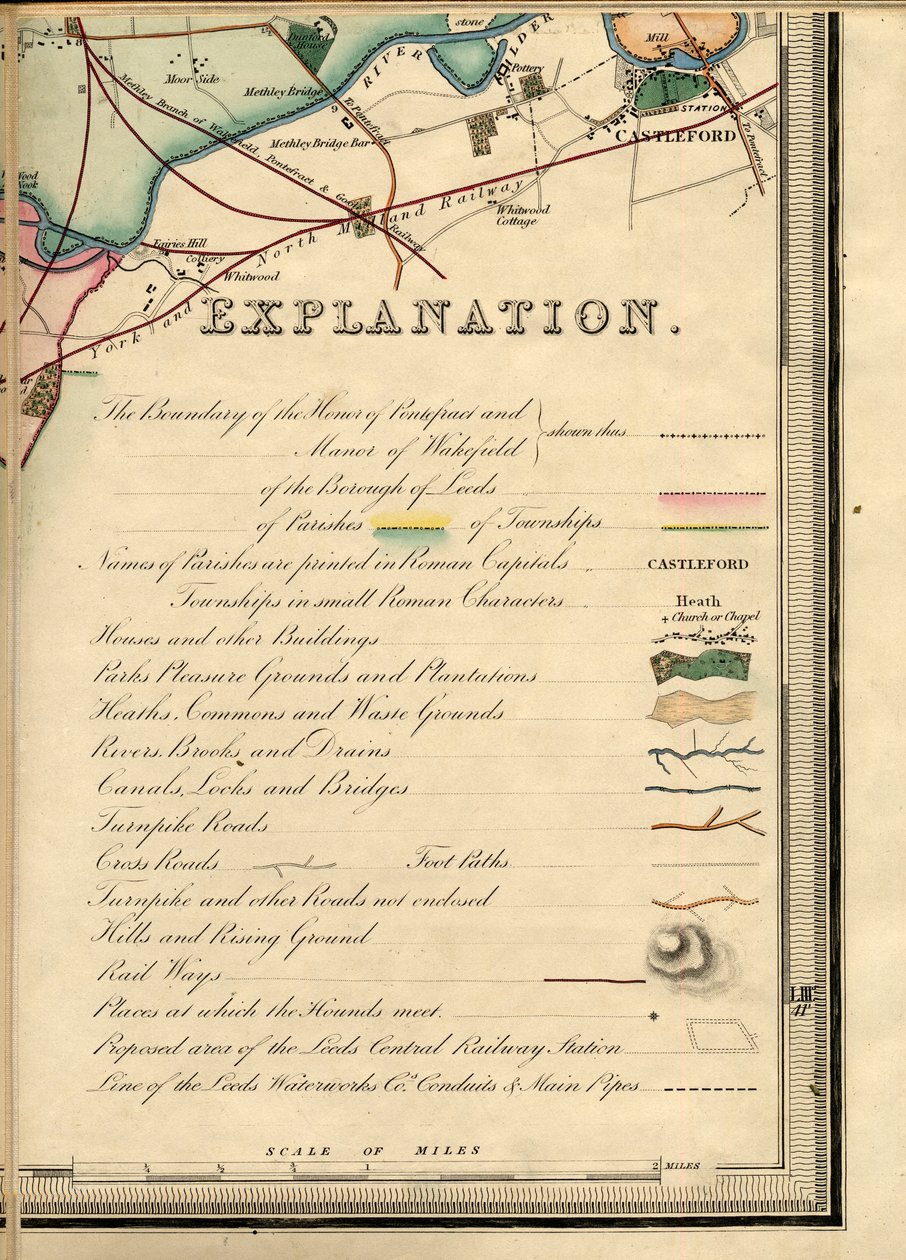 stone
RIVER CALDER
Dunford House
Mill
Moor Side
Pottery
Methley Bridge
9
8
To Pontefract
STATION
CASTLEFORD
Methley Branch of Wakefield, Pontefract & Goole Railway
Methley Bridge Bar
To Pontefract
Wood Nook
Whitwood Cottage
York and North Midland Railway
Fairies Hill
Colliery
Whitwood
EXPLANATION.
The Boundary of the Honor of Pontefract and
Manor of Wakefield
shown thus
of the Borough of Leeds „
of Parishes of Townships
Names of Parishes are printed in Roman Capitals „ CASTLEFORD
Townships in small Roman Characters „ Heath
+ Church or Chapel
Houses and other Buildings
Parks Pleasure Grounds and Plantations
Heaths, Commons and Waste Grounds
Rivers, Brooks and Drains
Canals, Locks and Bridges
Turnpike Roads
Cross Roads Foot Paths
Turnpike and other Roads not enclosed
Hills and Rising Ground
Rail Ways
Places at which the Hounds meet.
Proposed area of the Leeds Central Railway Station
Line of the Leeds Waterworks Co.s Conduits & Main Pipes
LIII°
41'
SCALE OF MILES
¼ ½ ¾ 1 2 MILES